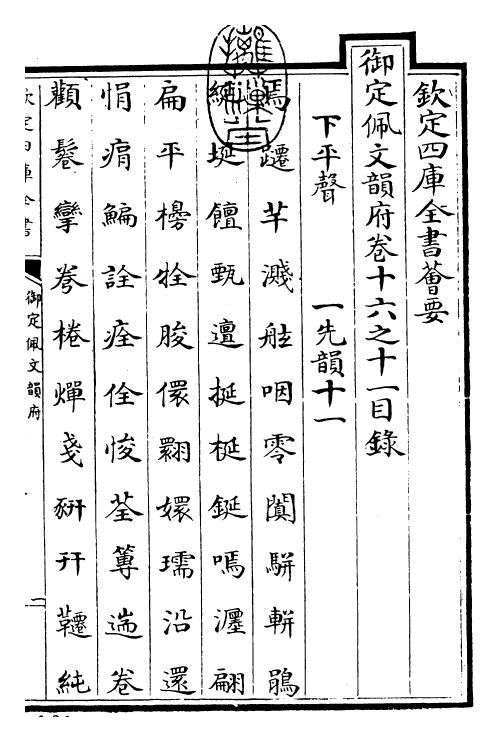 欽定四庫全書薈要
御定佩文韻府卷十六之十一目錄
下平聲　一先韻十一
焉蹮芊濺舷咽零闐駢軿鵑
綖埏饘甄邅挺梴鋋嗎瀍翩
扁平楩牷朘儇翾嬛瓀沿還
悁痟鯿詮痊佺悛荃篿遄卷
顴鬈攣拳棬燀戔豣幵韆純
欽定四庫全書
御定佩文韻府